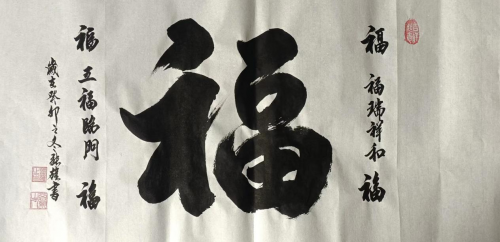 福
福瑞祥和
福
福
福
五福臨門
福
歲在癸卯之冬
書